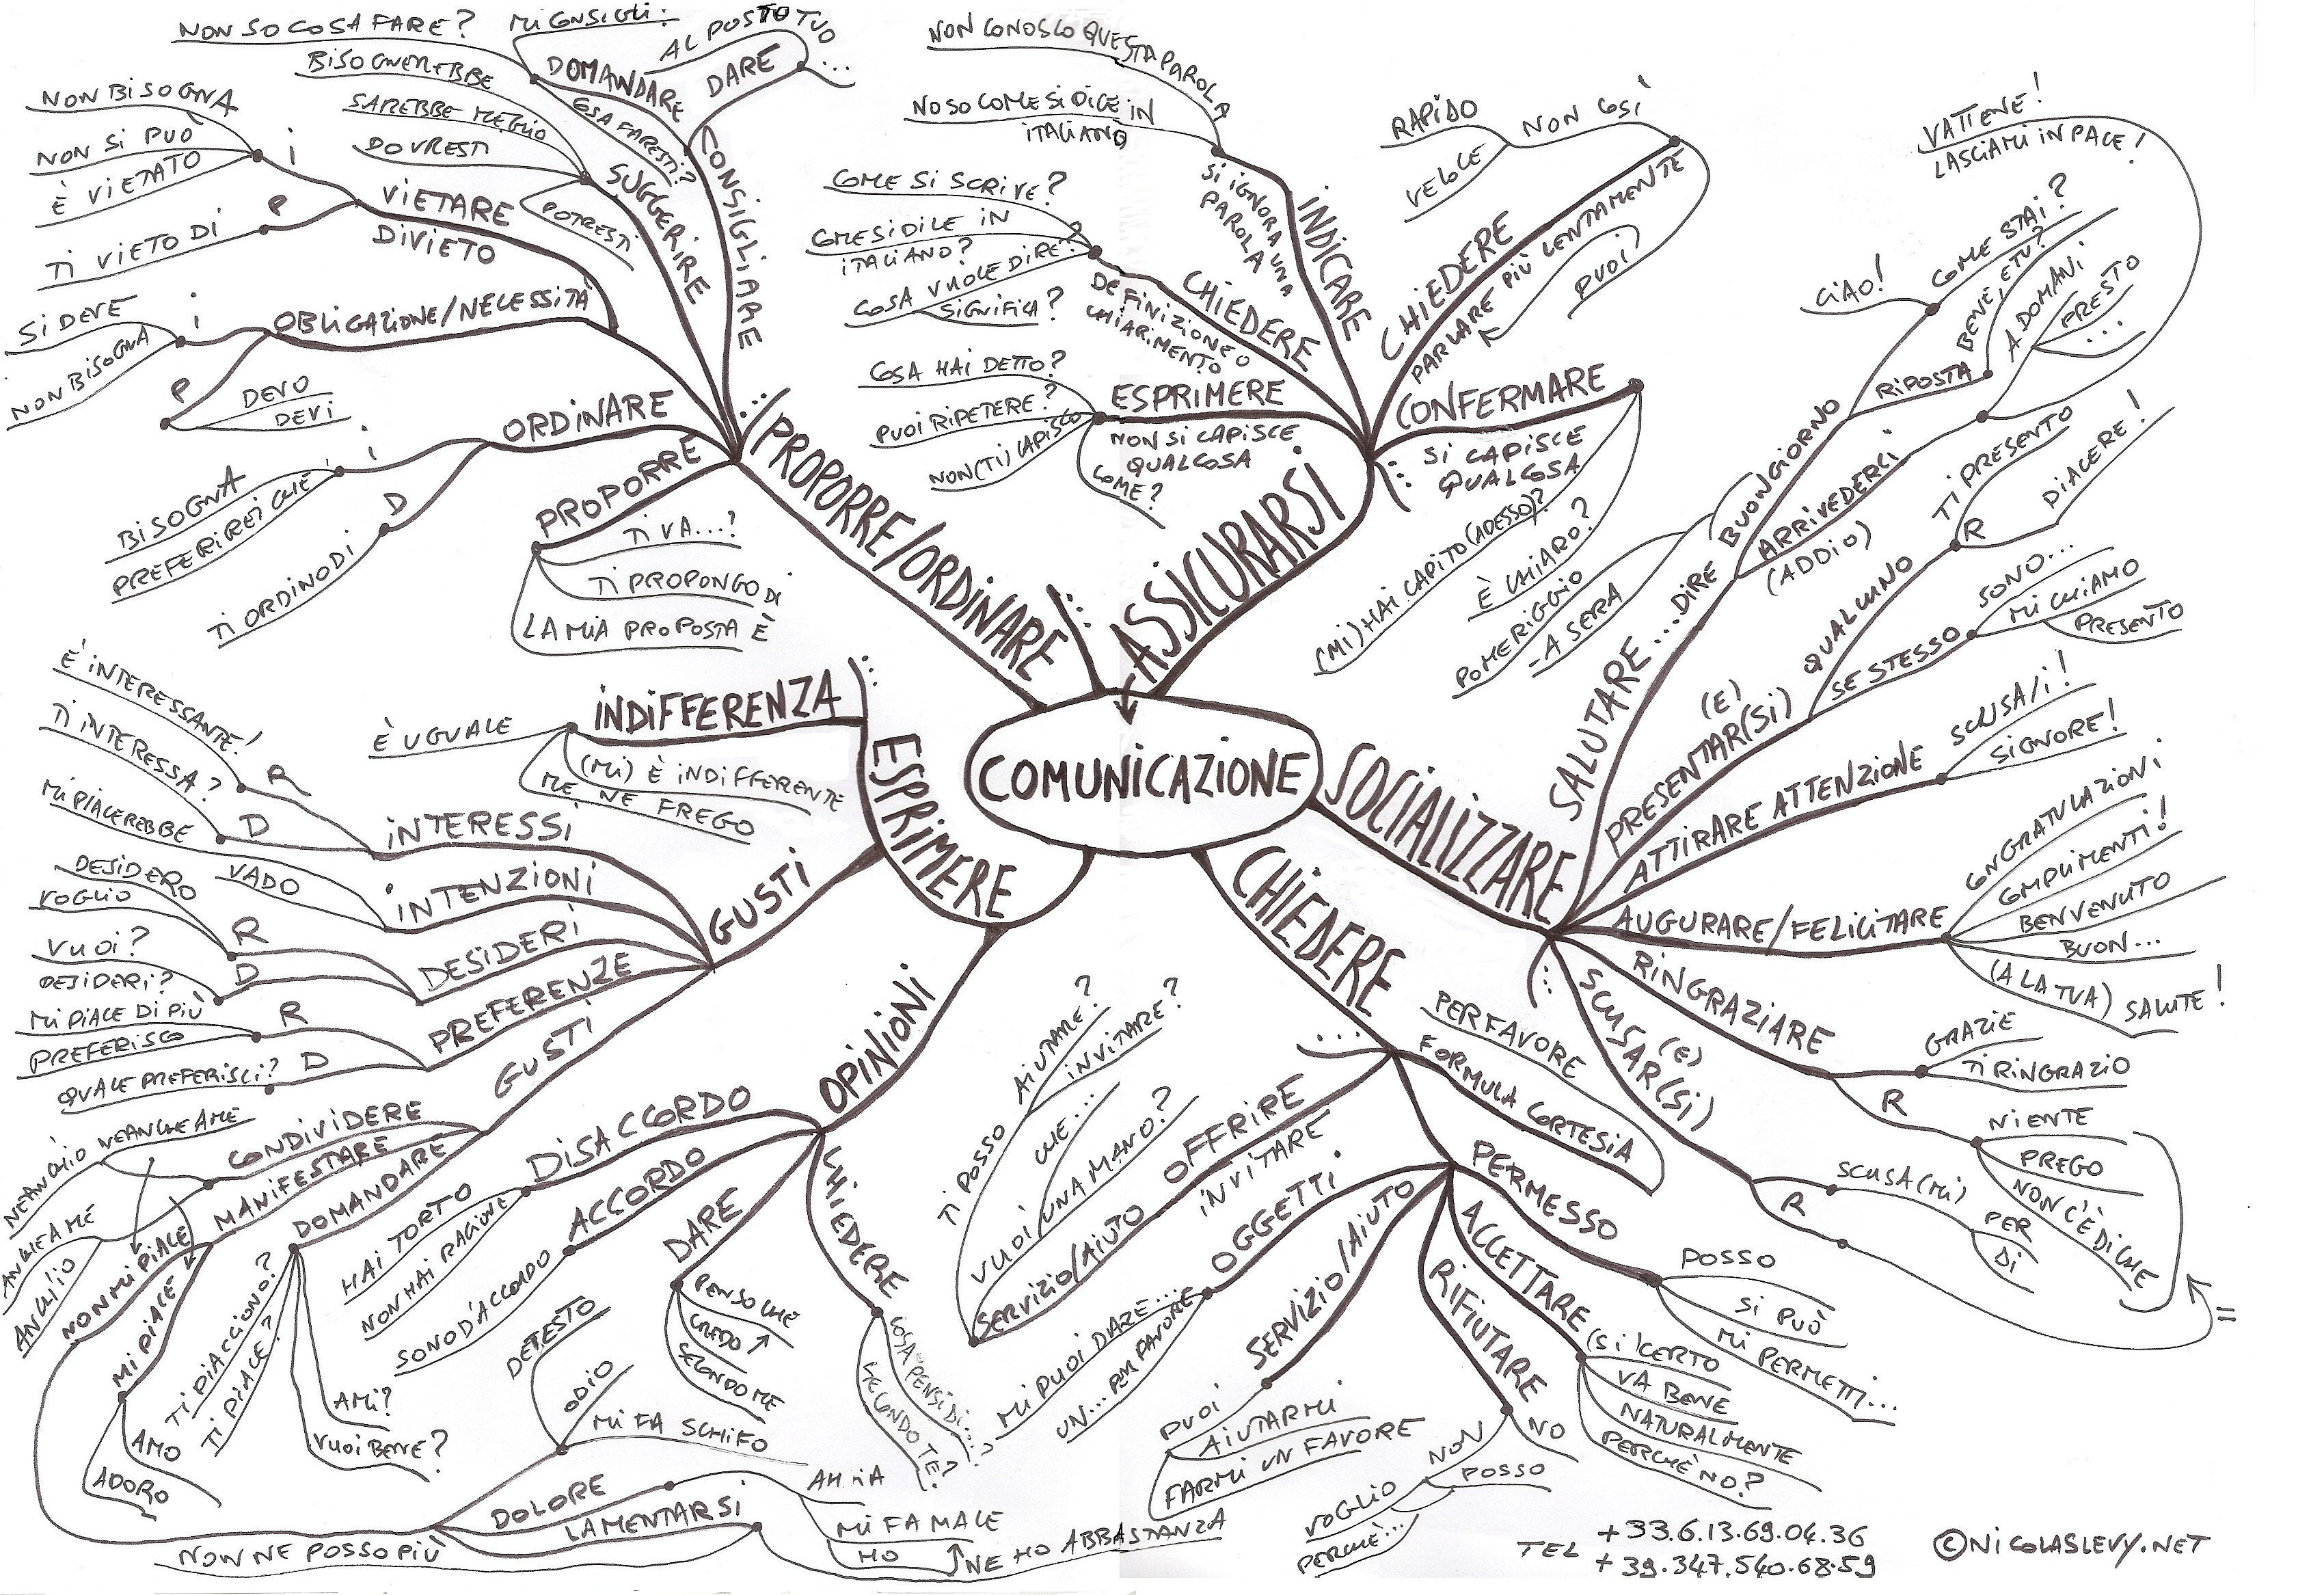 COMUNICAZIONE
PROPORRE/ORDINARE
...
CONSIGLIARE
DARE
AL POSTO TUO
...
DOMANDARE
MI CONSIGLI:
NON SO COSA FARE?
COSA FARESTI?
SUGGERIRE
BISOGNEREBBE
SAREBBE MEGLIO
DOVRESTI
POTRESTI
VIETARE
DIVIETO
i
NON BISOGNA
NON SI PUÒ
È VIETATO
P
TI VIETO DI
OBLIGAZIONE/NECESSITÀ
i
SI DEVE
NON BISOGNA
P
DEVO
DEVI
ORDINARE
i
BISOGNA
PREFERIREI CHE
D
TI ORDINO DI
PROPORRE
TI VA...?
TI PROPONGO DI
LA MIA PROPOSTA È
...
ASSICURARSI
INDICARE
SI IGNORA UNA
PAROLA
NON CONOSCO QUESTA PAROLA
NO SO COME SI DICE IN
ITALIANO
CHIEDERE
DEFINIZIONE O
CHIARIMENTO
COME SI SCRIVE?
COME SI DICE IN
ITALIANO?
COSA VUOLE DIRE?
SIGNIFICA?
ESPRIMERE
NON SI CAPISCE
QUALCOSA
COSA HAI DETTO?
PUOI RIPETERE?
NON (TI) CAPISCO
COME?
CHIEDERE
PARLARE PIÙ LENTAMENTE
NON COSÌ
RAPIDO
VELOCE
PUOI
CONFERMARE
SI CAPISCE
QUALCOSA
(MI) HAI CAPITO (ADESSO)?
È CHIARO?
...
SOCIALIZZARE
SALUTARE...DIRE
BUONGIORNO
POMERIGGIO
-A SERA
CIAO!
COME STAI?
RIPOSTA
BENE, E TU?
ARRIVEDERCI
(ADDIO)
A DOMANI
PRESTO
...
VATTENE!
LASCIAMI IN PACE!
(E)
PRESENTAR(SI)
QUALCUNO
TI PRESENTO
R
PIACERE!
SE STESSO
SONO...
MI CHIAMO
PRESENTO
ATTIRARE ATTENZIONE
SCUSA/I!
SIGNORE!
AUGURARE/FELICITARE
CONGRATULAZIONI
COMPLIMENTI!
BENVENUTO
BUON...
(A LA TUA) SALUTE!
RINGRAZIARE
GRAZIE
TI RINGRAZIO
R
NIENTE
PREGO
NON C'È DI CHE
(E)
SCUSAR(SI)
SCUSA(MI)
PER
DI
R
=
...
CHIEDERE
...
FORMULA CORTESIA
PER FAVORE
OFFRIRE
INVITARE
SERVIZIO/AIUTO
TI POSSO
AIUTARE?
INVITARE?
VUOI
CHE...
UNA MANO?
PERMESSO
POSSO
SI PUÒ
MI PERMETTI...
OGGETTI
MI PUOI DARE...
UN... PER FAVORE
SERVIZIO/AIUTO
PUOI
AIUTARMI
FARMI UN FAVORE
ACCETTARE
(SI) CERTO
VA BENE
NATURALMENTE
PERCHÈ NO?
RIFIUTARE
NO
NON
POSSO
VOGLIO
PERCHÈ...
ESPRIMERE
...
INDIFFERENZA
È UGUALE
(MI) È INDIFFERENTE
ME NE FREGO
GUSTI
INTERESSI
R
È INTERESSANTE!
D
TI INTERESSA?
INTENZIONI
MI PIACEREBBE
VADO
DESIDERI
R
DESIDERO
VOGLIO
D
VUOI?
DESIDERI?
PREFERENZE
R
MI PIACE DI PIÙ
PREFERISCO
D
QUALE PREFERISCI?
GUSTI
CONDIVIDERE
NEANCH'IO NEANCHE A ME
ANCHE A ME
ANCH'IO
MANIFESTARE
NON MI PIACE
MI PIACE
AMO
ADORO
DOMANDARE
TI PIACCIONO?
TI PIACE?
AMI?
VUOI BENE?
DETESTO
ODIO
MI FA SCHIFO
DOLORE
MI FA MALE
HO
LAMENTARSI
NE HO ABBASTANZA
NON NE POSSO PIÙ
OPINIONI
DISACCORDO
HAI TORTO
NON HAI RAGIONE
ACCORDO
SONO D'ACCORDO
DARE
PENSO CHE
CREDO
SECONDO ME
CHIEDERE
COSA PENSI DI...?
SECONDO TE?
TEL +33.6.13.69.04.36
+39.347.540.68.59
©NICOLASLEVY.NET